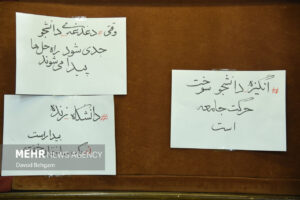 وقتی #دغدغه‌ی دانشجو
جدی شود راه حل‌ها
پیدا می‌شوند
#دانشکده زنده
بیدار است
#انگیزه دانشجو سوخت
حرکت جامعه
است
MEHR NEWS AGENCY
Davod Behgam